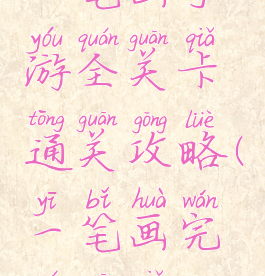 yóu quán guān qiǎ
游全关卡
tōng guān gōng lüè
通关攻略(
yī bǐ huà wán
一笔画完